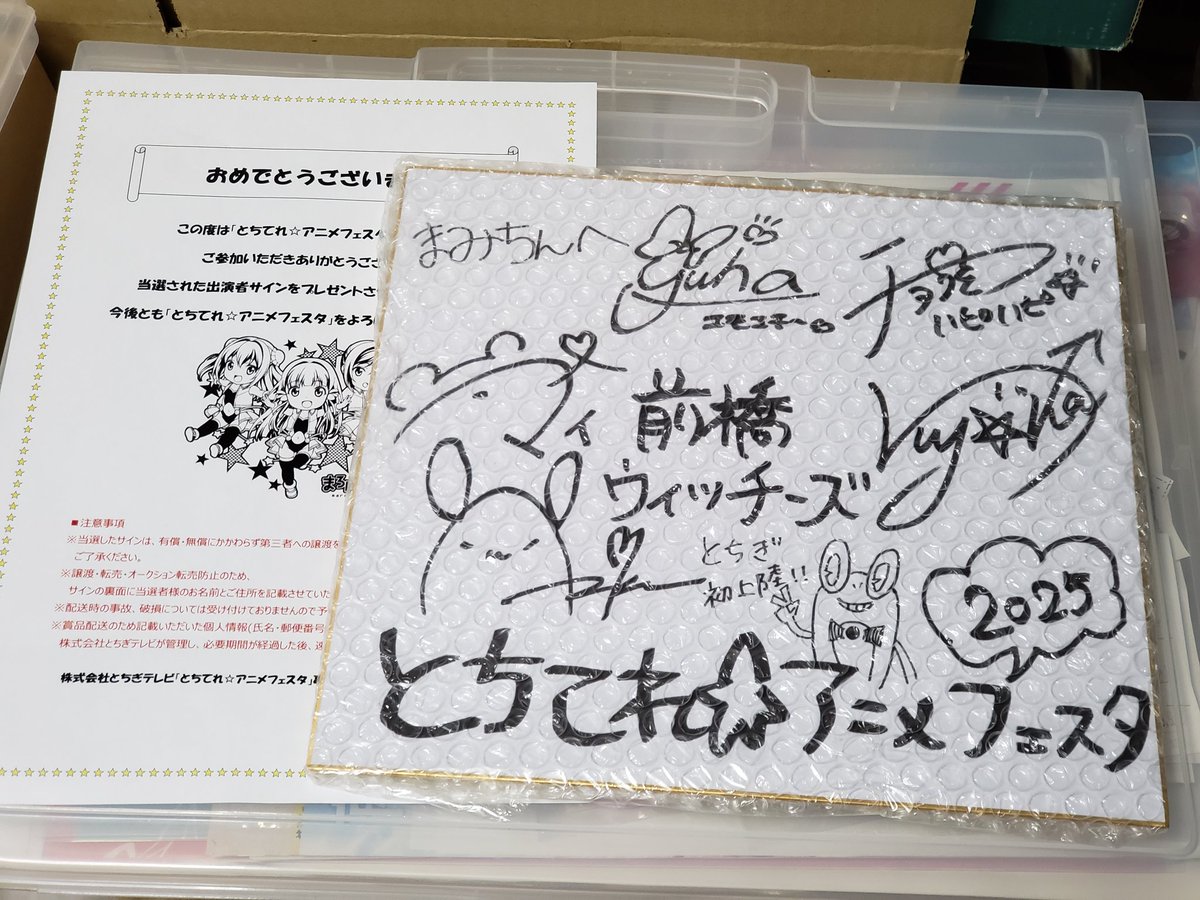 おめでとうございま
この度は「とちてれ☆アニメフェスタ
ご参加いただきありがとうござ
当選された出演者サインをプレゼントさ
今後とも「とちてれ☆アニメフェスタ」をよろ
まろ
■注意事項
※当選したサインは、有償・無償にかかわらず第三者への譲渡を
ご了承ください。
※譲渡・転売・オークション転売防止のため、
サインの裏面に当選者様のお名前とご住所を記載させていた
※配送時の事故、破損については受け付けておりませんので予
※賞品配送のため記載いただいた個人情報(氏名・郵便番号
株式会社とちぎテレビが管理し、必要期間が経過した後、速
株式会社とちぎテレビ「とちてれ☆アニメフェスタ」事
まみちんへ
yuna
チョコ
いぴいぴ
マイ
前橋
ウィッチーズ
とちぎ
初上陸!!
2025
とちてれ☆アニメフェスタ